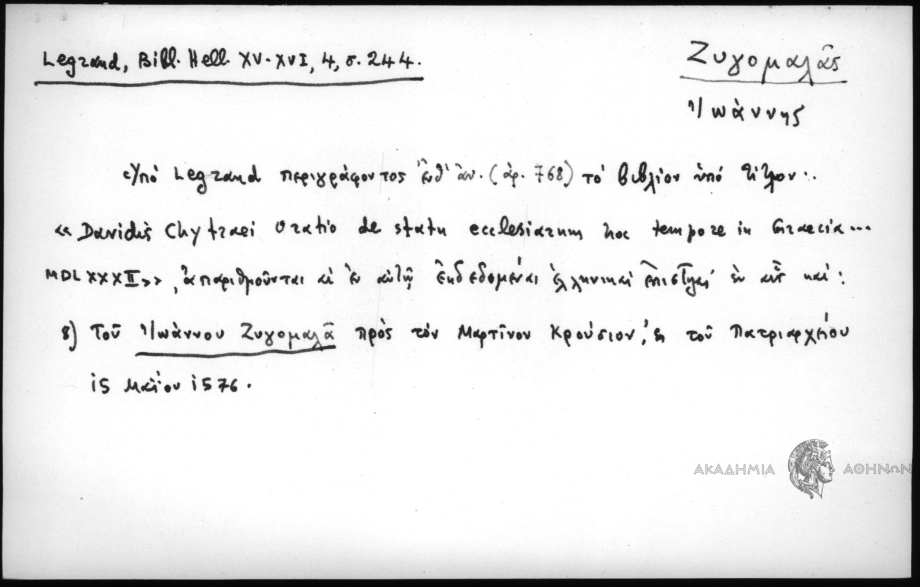 Legrand, Bibl. Hell. XV-XVI, 4, σ. 244.
Ζυγομαλᾶς
Ἰωάννης
Ὑπό Legrand περιγράφοντος ἐνθ' ἀν. (ἀρ. 768) τό βιβλίον ὑπό τίτλον..
«Davidis Chytraei Oratio de statu ecclesiarum hoc tempore in Graecia...
MDLXXXII», ἀπαριθμοῦνται αἱ ἐν αὐτῇ ἐκδεδομέναι ἑλληνικαί ἐν καί:
8) Τοῦ Ἰωάννου Ζυγομαλᾶ πρὸς τὸν Μαρτῖνον Κρούσιον, ἐκ τοῦ Πατριαρχείου
15 Μαΐου 1576.
ΑΚΑΔΗΜΙΑ ΑΘΗΝΩΝ